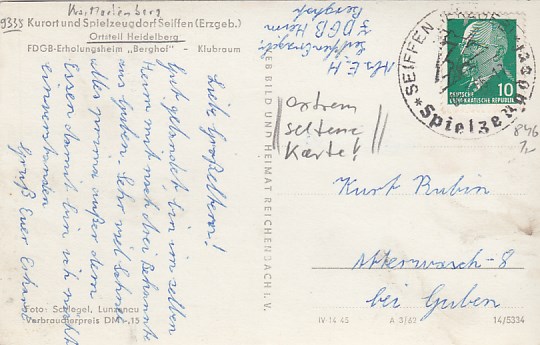 Krs. Marienberg
9335 Kurort und Spielzeugdorf Seiffen (Erzgeb.)
Ortsteil Heidelberg
FDGB-Erholungsheim „Berghof“ - Klubraum
Liebe Großeltern!
Gut gelandet, bin im selben
Heim mit noch drei Bekannte
aus Guben. Sehr viel Schnee
alles prima außer dem
Essen damit bin ich nicht
einverstanden
Gruß Euer Erhard
Foto: Schlegel, Lunzenau
Verbraucherpreis DM -,15
VEB BILD UND HEIMAT REICHENBACH I. V.
Abs. E. H.
Seiffen Erzgeb.
FDGB Heim
Berghof
extrem
seltene
Karte!
SEIFFEN
Spielzeugdorf
10
DEUTSCHE
DEMOKRATISCHE REPUBLIK
846
7,-
Kurt Rubin
Atterwasch-8
bei Guben
IV-14-45
A 3/62
14/5334